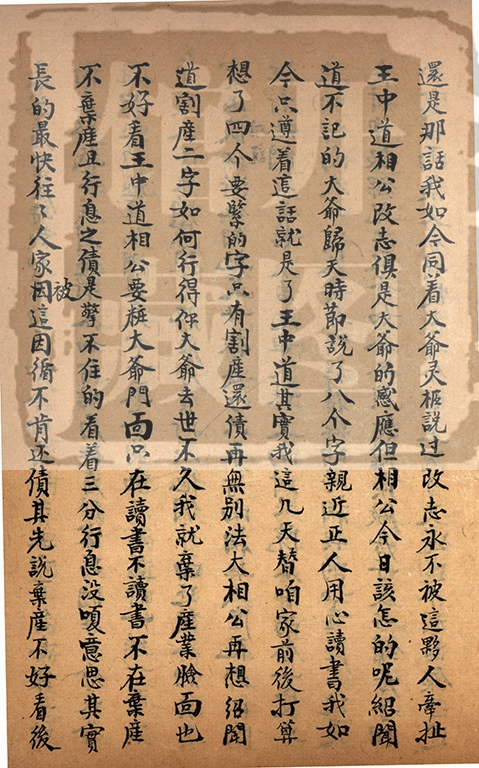 還是那話我如今同着大爺灵柩說过改志永不被這夥人牽扯
王中道相公改志俱是大爺的感應但相公今日該怎的呢紹聞
道不記的大爺歸天時節說了八个字親近正人用心讀書我如
今只遵着這話就是了王中道其實我這几天替咱家前後打算
想了四个要緊的字只有割産還債再無别法大相公再想紹聞
道割産二字如何行得你大爺去世不久我就棄了産業臉面也
不好看王中道相公要糚大爺門面只在讀書不讀書不在棄産
不棄産且行息之債是擎不住的看着三分行息没嗄意思其實
長的最快往々人家被因這因循不肯还債其先說棄産不好看後